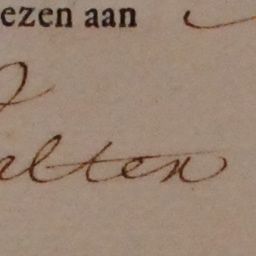 ezen aan
alten